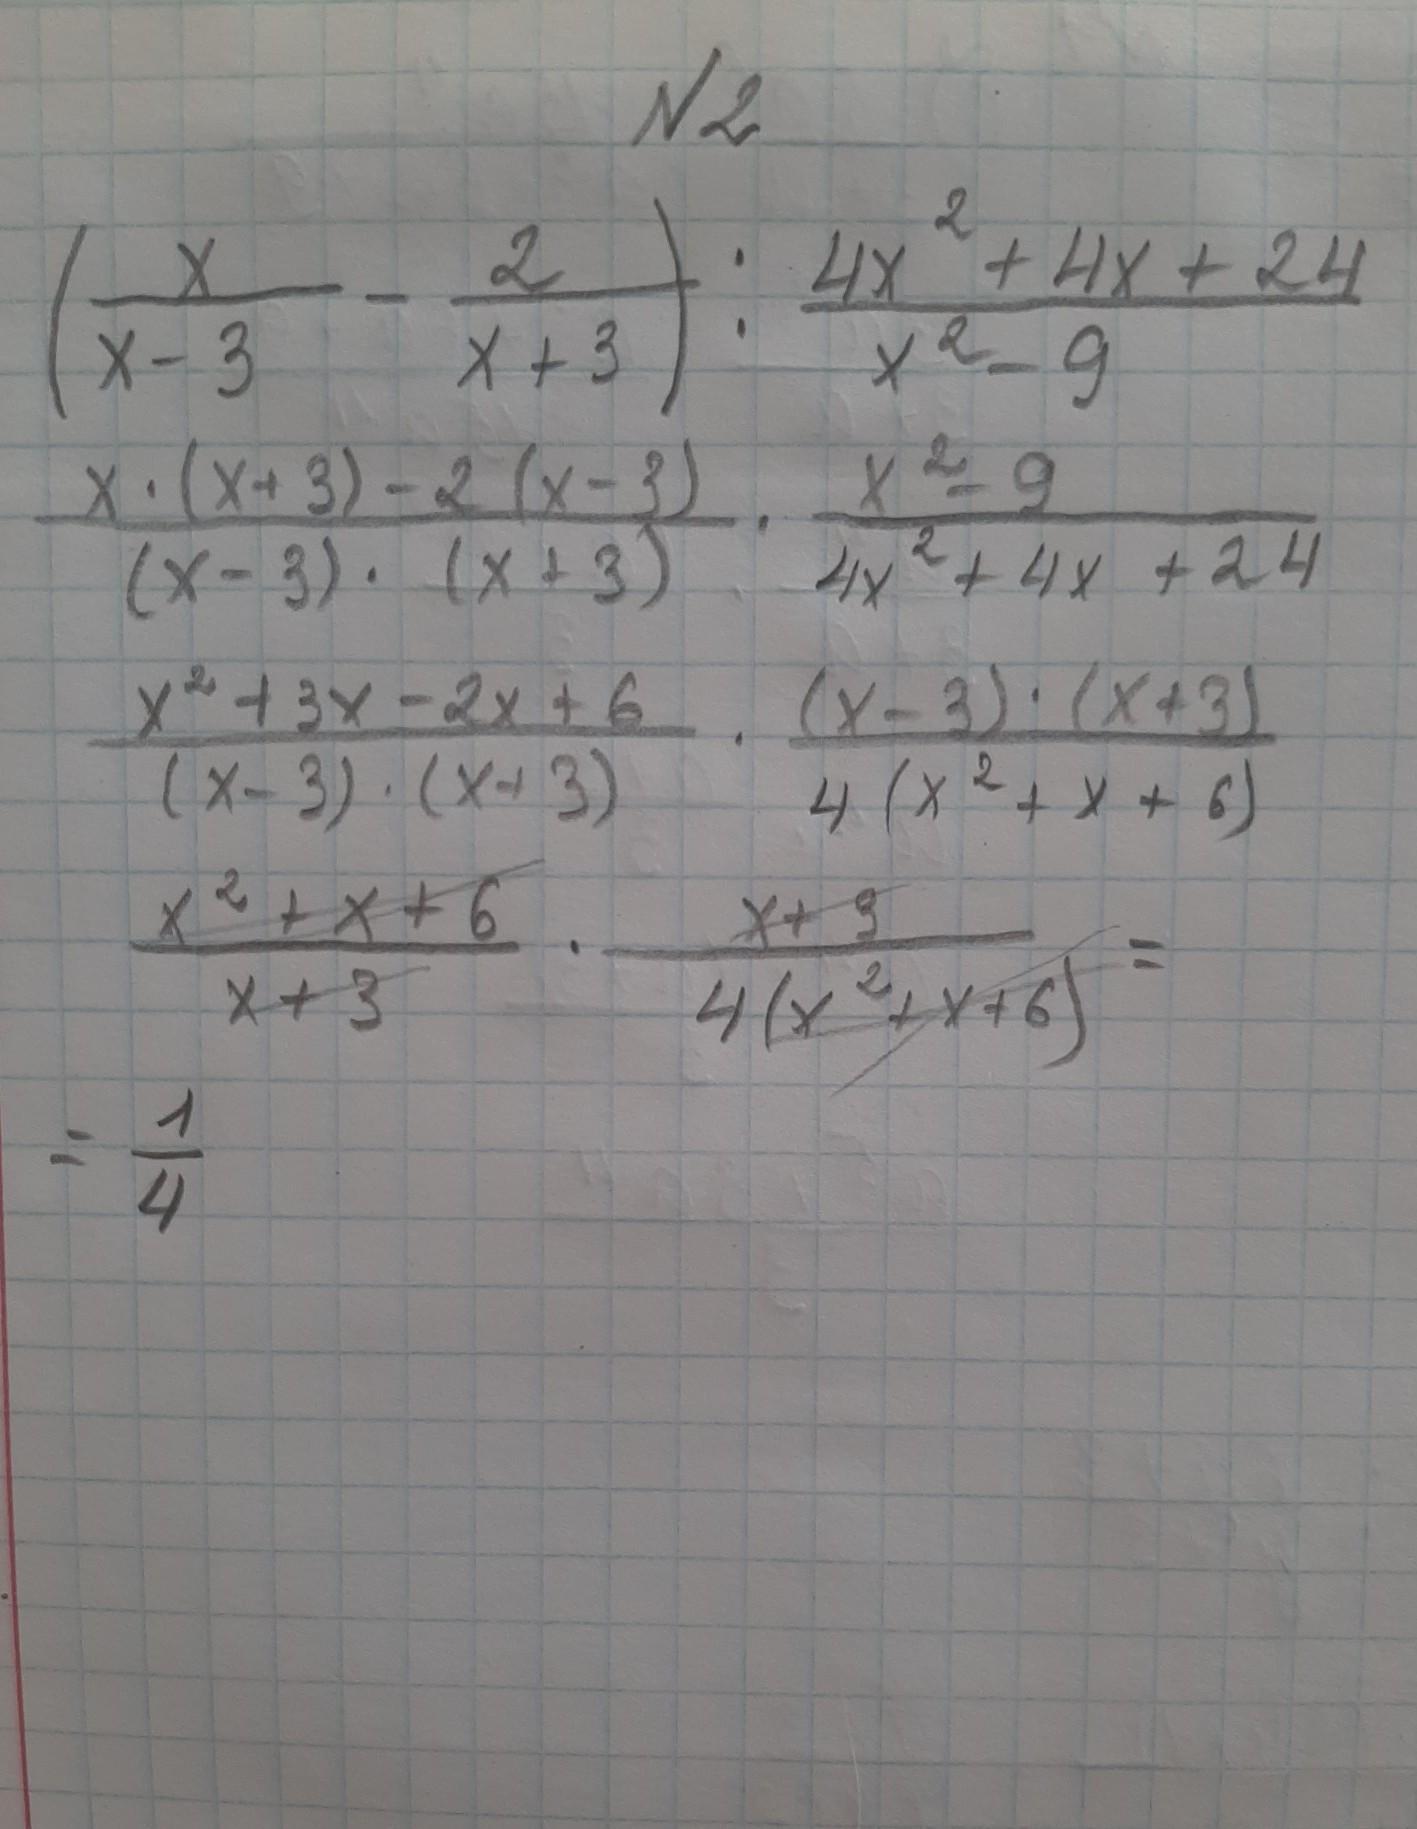 N2
(x/(x-3) - 2/(x+3)) : (4x² + 4x + 24)/(x² - 9)
(x·(x+3) - 2(x-3))/((x-3)·(x+3)) · (x² - 9)/(4x² + 4x + 24)
(x² + 3x - 2x + 6)/((x-3)·(x+3)) · ((x-3)·(x+3))/(4(x² + x + 6))
(x² + x + 6)/(x+3) · (x+3)/(4(x² + x + 6)) =
= 1/4